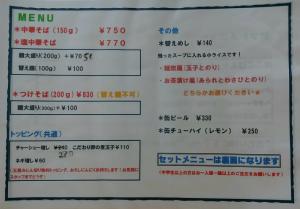 MENU
＊中華そば（150g） ￥750
＊塩中華そば ￥770
麺大盛り(200g) ＋￥70
替え麺(100g) ￥100
＊つけそば(200g)￥830（替え麺不可）
麺大盛り(300g)＋￥100
トッピング(共通)
チャーシュー増し ￥240 こだわり卵の煮玉子￥110
ネギ増し ￥60
その他
＊替えめし ￥140
残ったスープに入れるライスです！
（玉子とのり）
・お茶漬け風（あられとわさびとのり）
どちらかお選びください！
＊缶ビール ￥330
＊缶チューハイ（レモン） ￥250
セットメニューは裏面になります